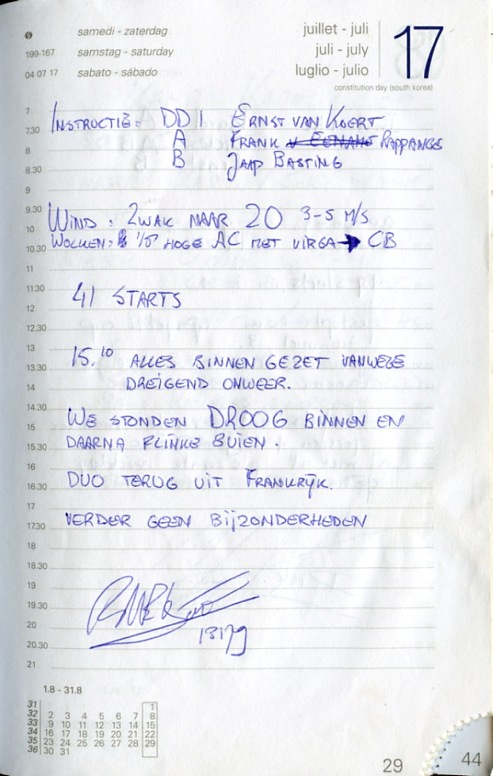 samedi - zaterdag
juillet - juli
17
199-167
samstag - saturday
juli - july
04 07 17
sabato - sábado
luglio - julio
constitution day (south korea)
7
INSTRUCTIE: DD I ERNST VAN KOERT
7.30
A FRANK RAPPANGE
8
B JAAP BASTING
8.30
9
9.30
WIND: ZWAK NAAR 20 3-5 M/S
10
WOLKEN: HOGE AC MET VIRGA → CB
10.30
11
11.30
41 STARTS
12
12.30
13
15.10 ALLES BINNEN GEZET VANWEGE
13.30
DREIGEND ONWEER.
14
14.30
WE STONDEN DROOG BINNEN EN
15
DAARNA FLINKE BUIEN.
15.30
16
DUO TERUG UIT FRANKRIJK.
16.30
17
VERDER GEEN BIJZONDERHEDEN
17.30
18
18.30
19
19.30
20
20.30
21
1.8 - 31.8
31 1
32 2 3 4 5 6 7 8
33 9 10 11 12 13 14 15
34 16 17 18 19 20 21 22
35 23 24 25 26 27 28 29
36 30 31
29
44